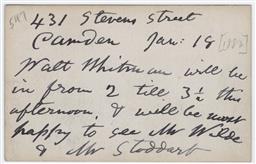 547
431 Stevens Street
Camden Jan: 18 [1882]
Walt Whitman will be
in from 2 till 3½ this
afternoon, & will be most
happy to see Mr Wilde
& Mr Stoddart